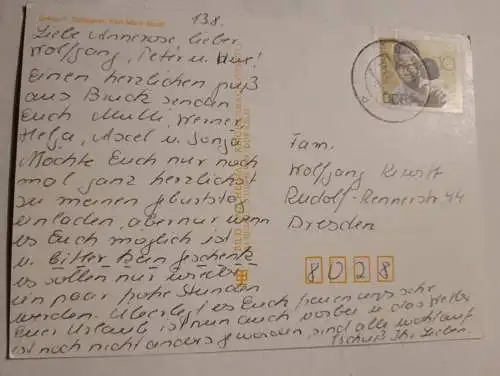 13.8.
Liebe Annerose lieber
Wolfgang, Peter u. Uwe!
Einen herzlichen Gruß
aus Bruck senden
Euch Mutti, Werner
Helga, Axel u. Sonja
Möchte Euch nur noch
mal ganz herzlichst
zu meinen Geburtstag
einladen, aber nur wenn
es Euch möglich ist
u. Bitte kein Geschenk
es sollen nur wieder
ein paar frohe Stunden
werden. Überlegt es Euch genau
Euer Urlaub ist nun auch vorbei u. das Wetter
ist noch nicht anders geworden, sind alle wohlauf
Tschüß Ihr Lieben.
10
DDR
Fam.
Wolfgang
Rudolf-Rennerstr 44
Dresden
8028